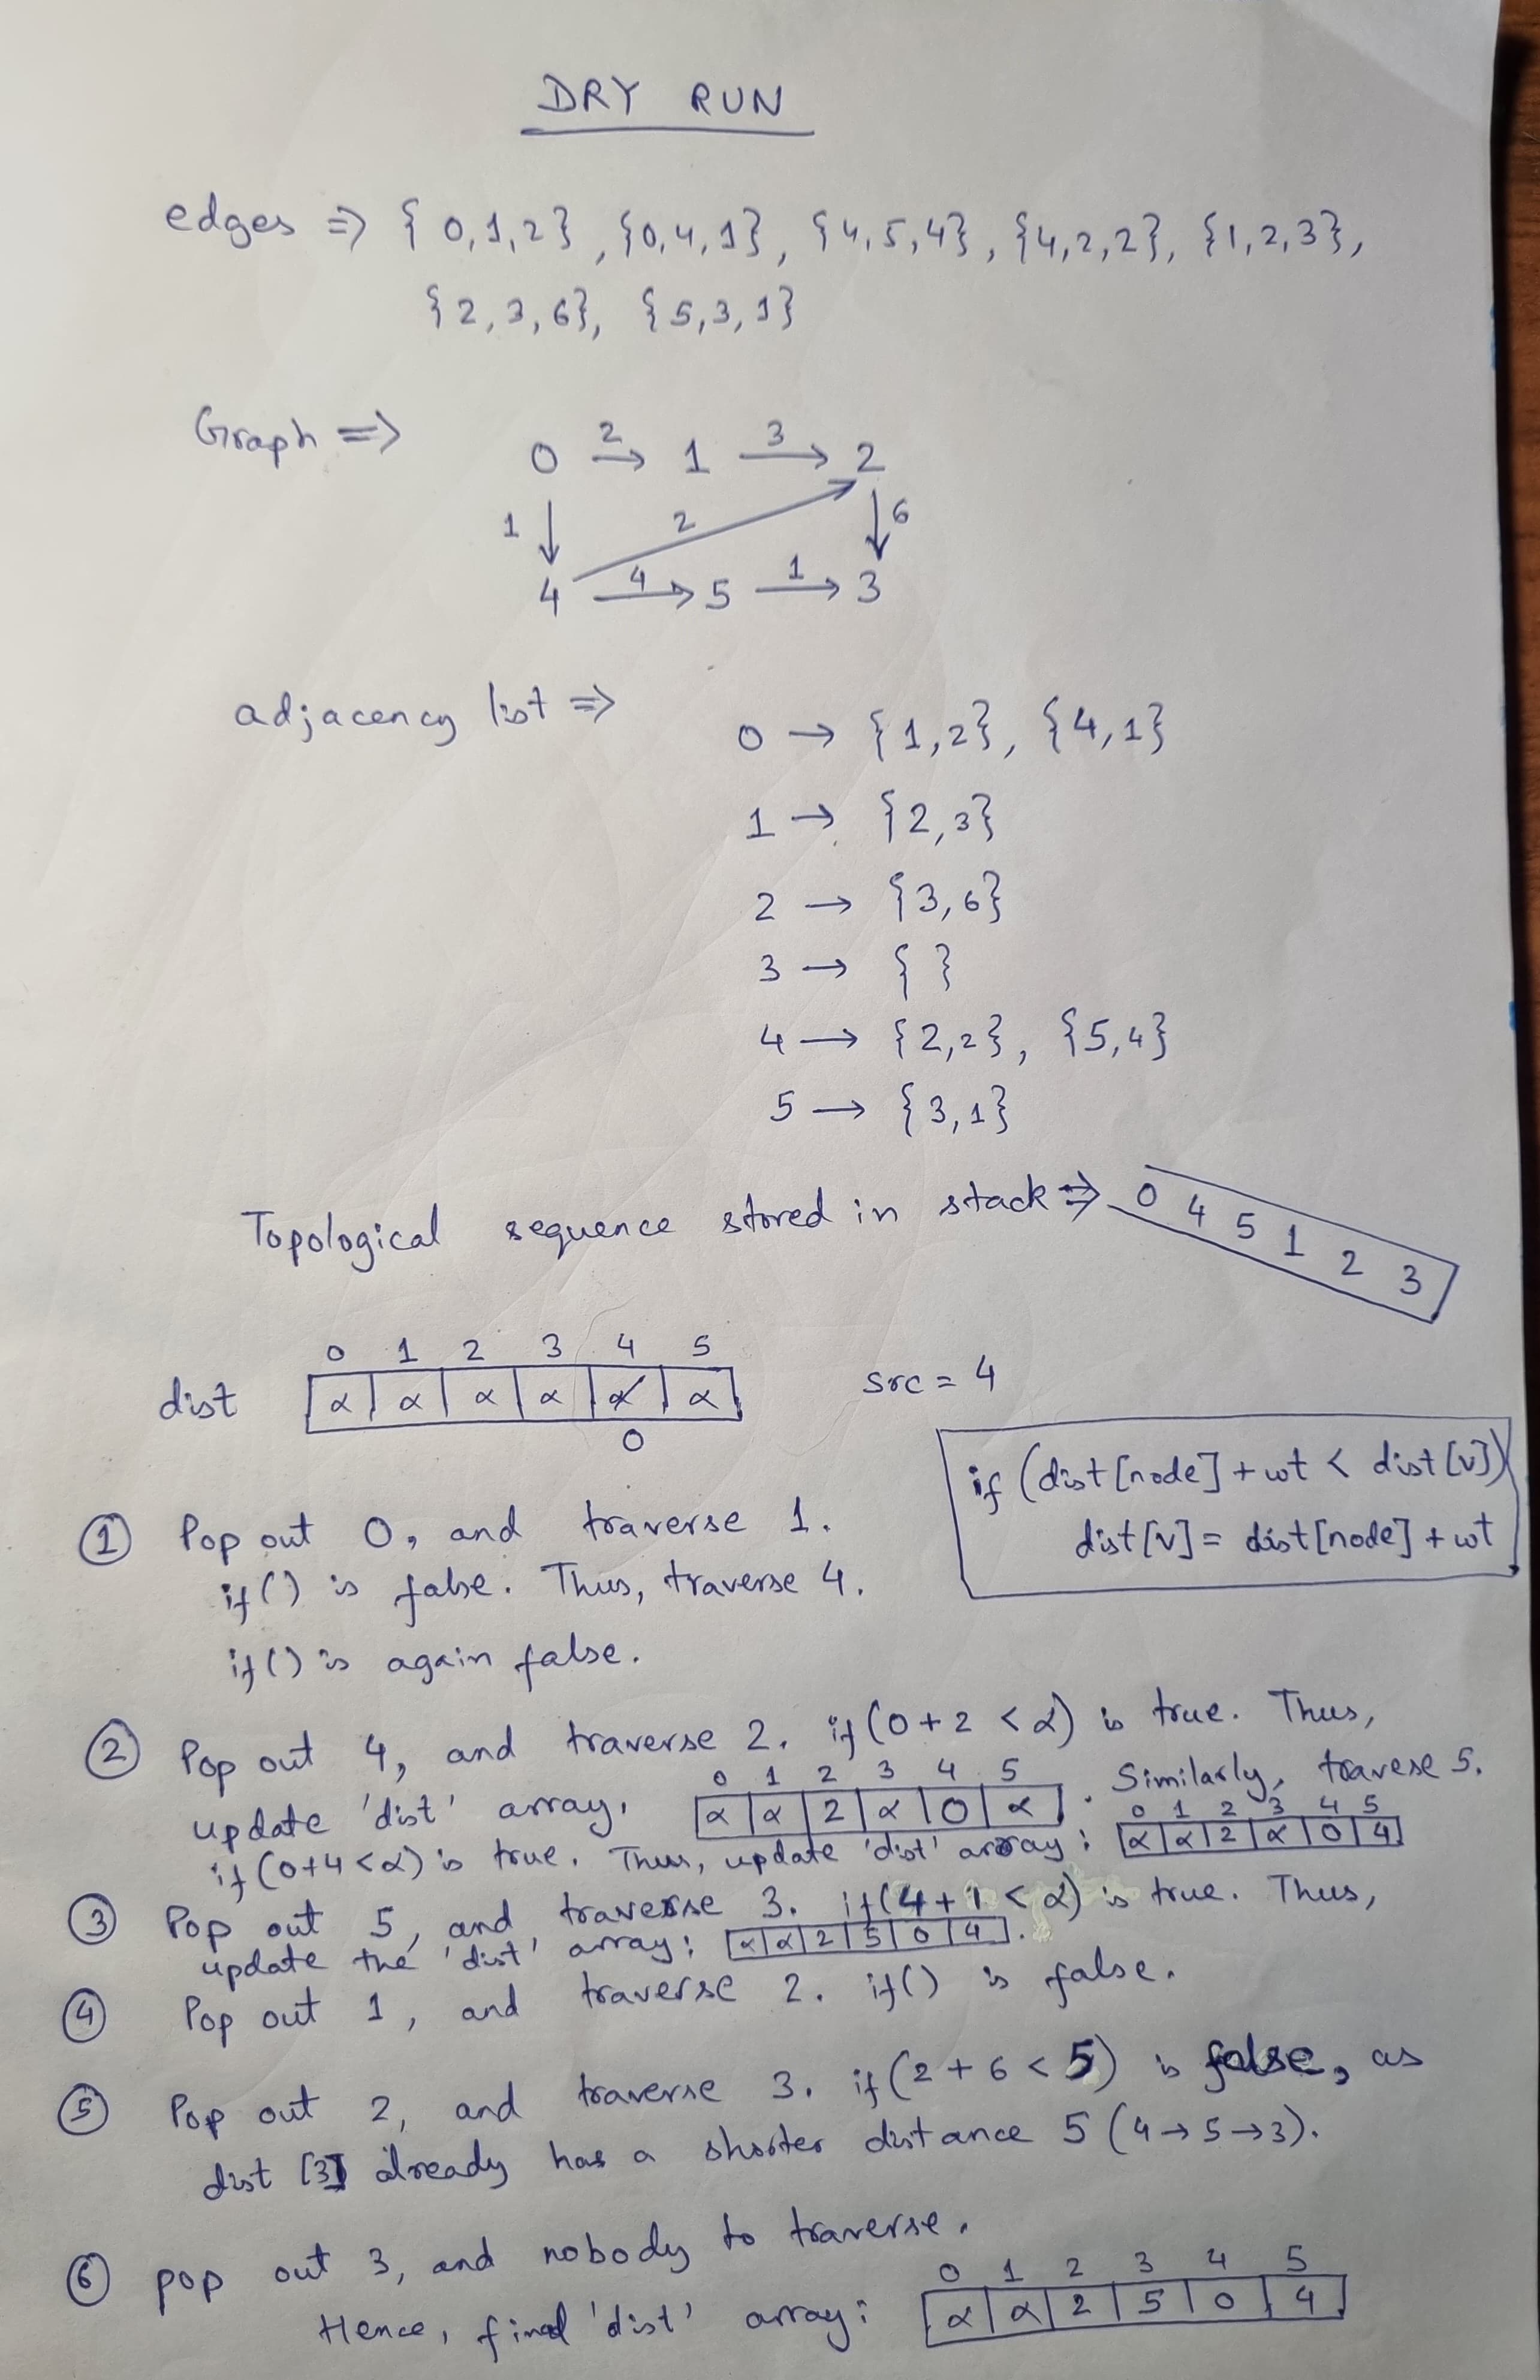 DRY RUN
edges => {0,1,2}, {0,4,1}, {4,5,4}, {4,2,2}, {1,2,3},
{2,3,6}, {5,3,1}
Graph =>
0 →2 1 →3 2
1 ↓ 2 ↓ 6
4 →4 5 →1 3
adjacency list =>
0 → {1,2}, {4,1}
1 → {2,3}
2 → {3,6}
3 → { }
4 → {2,2}, {5,4}
5 → {3,1}
Topological sequence stored in stack => 0 4 5 1 2 3
0 1 2 3 4 5
dist α α α α α α src = 4
0
if (dist[node] + wt < dist[v])
dist[v] = dist[node] + wt
① Pop out 0, and traverse 1.
if() is false. Thus, traverse 4.
if() is again false.
② Pop out 4, and traverse 2. if(0+2 < α) is true. Thus,
0 1 2 3 4 5
update 'dist' array. α α 2 α 0 α . Similarly, travese 5.
0 1 2 3 4 5
if (0+4 < α) is true. Thus, update 'dist' array: α α 2 α 0 4
③ Pop out 5, and traverse 3. if(4+1 < α) is true. Thus,
update the 'dist' array: α α 2 5 0 4 .
④ Pop out 1, and traverse 2. if() is false.
⑤ Pop out 2, and traverse 3. if(2+6 < 5) is false, as
dist [3] already has a shorter distance 5 (4→5→3).
⑥ pop out 3, and nobody to traverse.
0 1 2 3 4 5
Hence, final 'dist' array: α α 2 5 0 4